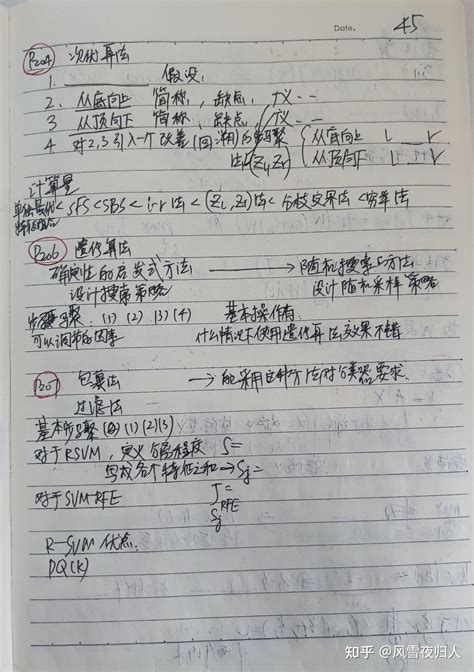 Date. 45
P204 次优算法
1. 假设:
2. 从底向上 简称, 缺点, 以--
3 从顶向下 简称, 缺点, 以--
4 对2,3引入一个改善(回溯)的步骤 { 从底向上 l r
法(Zl, Zr) 从顶向下 l r
计算量
单独最优特征组合 < SFS < SBS < l-r法 < (Zl, Zr)法 < 分枝定界法 < 穷举法
P206 遗传算法
确定性的启发式方法 → 随机搜索方法
设计搜索策略 设计随机采样策略
步骤: (1) (2) (3) (4) 基本操作有:
可以调节的因素 什么情况下使用遗传算法效果不错
P207 包裹法 → 能采用这种方法对分类器要求.
过滤法
基本步骤 (0) (1) (2) (3)
对于RSVM, 定义分离程度 S=
写成各个特征之和 → Sj=
对于SVM-RFE J=
Sj^RFE
R-SVM 优点:
DQ(k)
知乎 @风雪夜归人